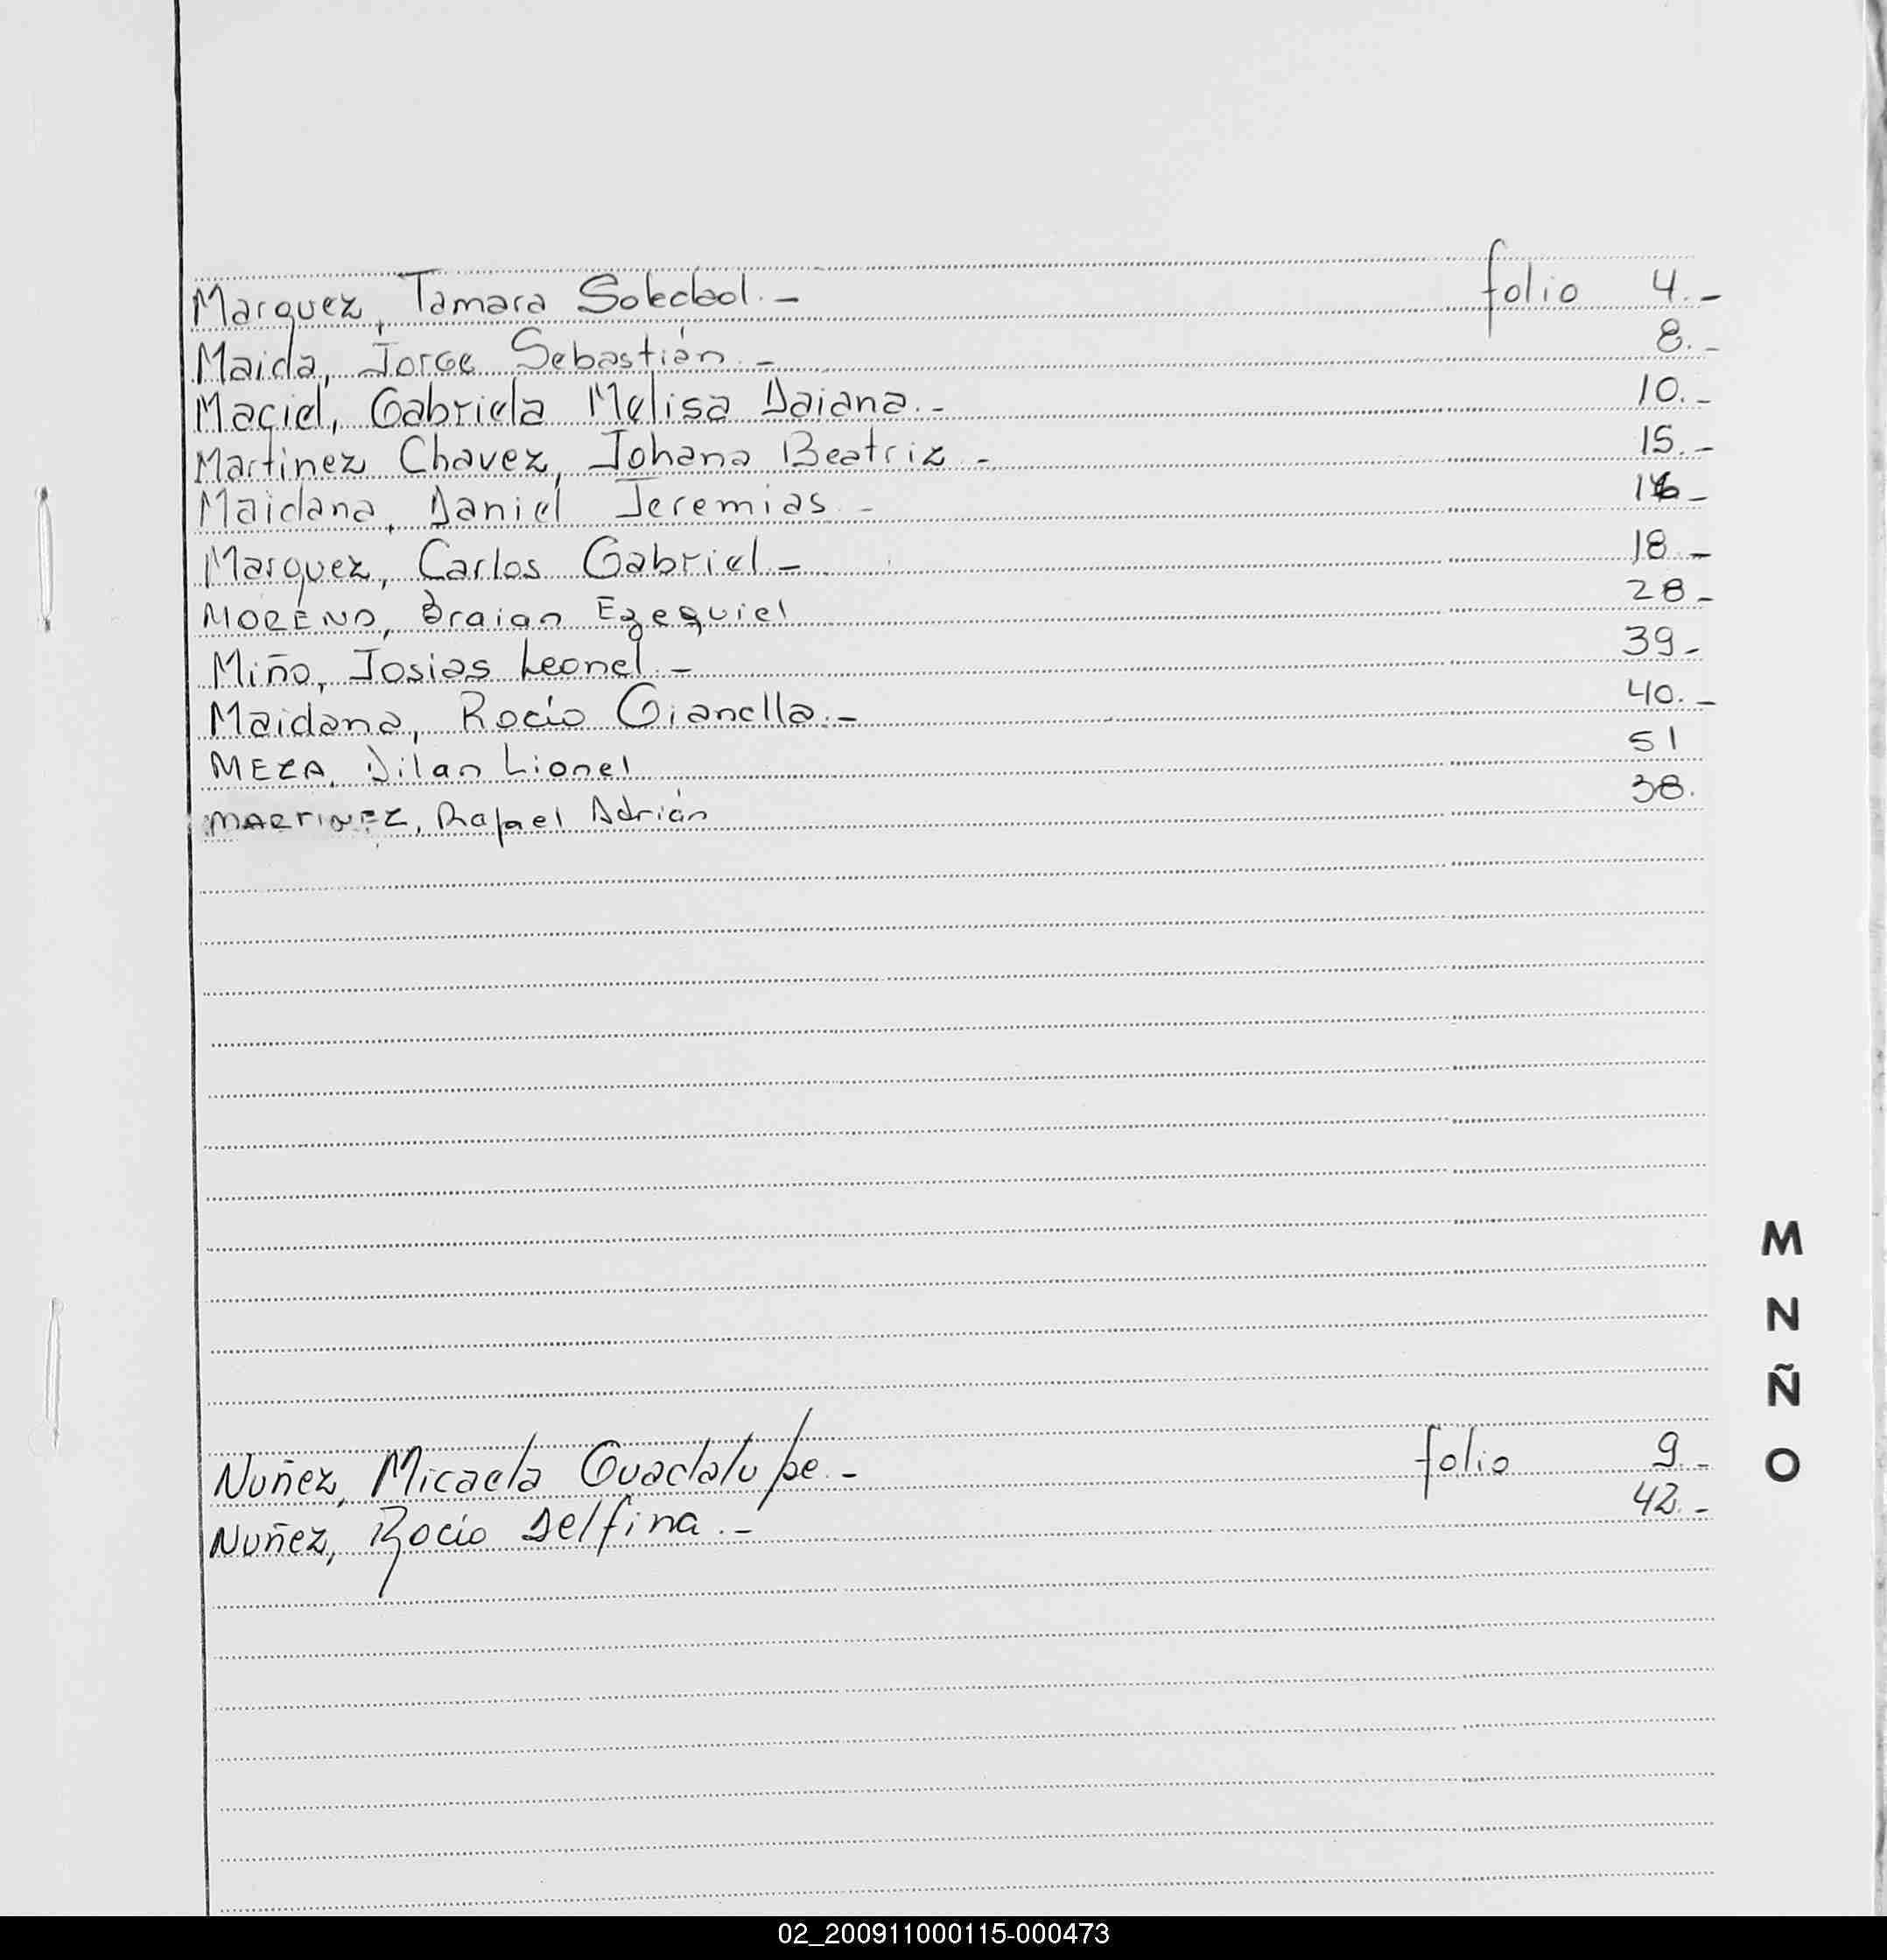 Marquez, Tamara Soledad.- folio 4.-
Maida, Jorge Sebastián.- 8.-
Maciel, Gabriela Melisa Daiana.- 10.-
Martinez Chavez, Johana Beatriz.- 15.-
Maidana, Daniel Jeremias.- 16-
Marquez, Carlos Gabriel.- 18.-
MORENO, Braian Ezequiel 28-
Miño, Josias Leonel.- 39-
Maidana, Rocío Gianella.- 40.-
MEZA, Dilan Lionel 51
MARTINEZ, Rafael Adrián 38.
M
N
Ñ
O
Nuñez, Micaela Guadalupe.- folio 9.-
Nuñez, Rocío Delfina.- 42.-
02_200911000115-000473